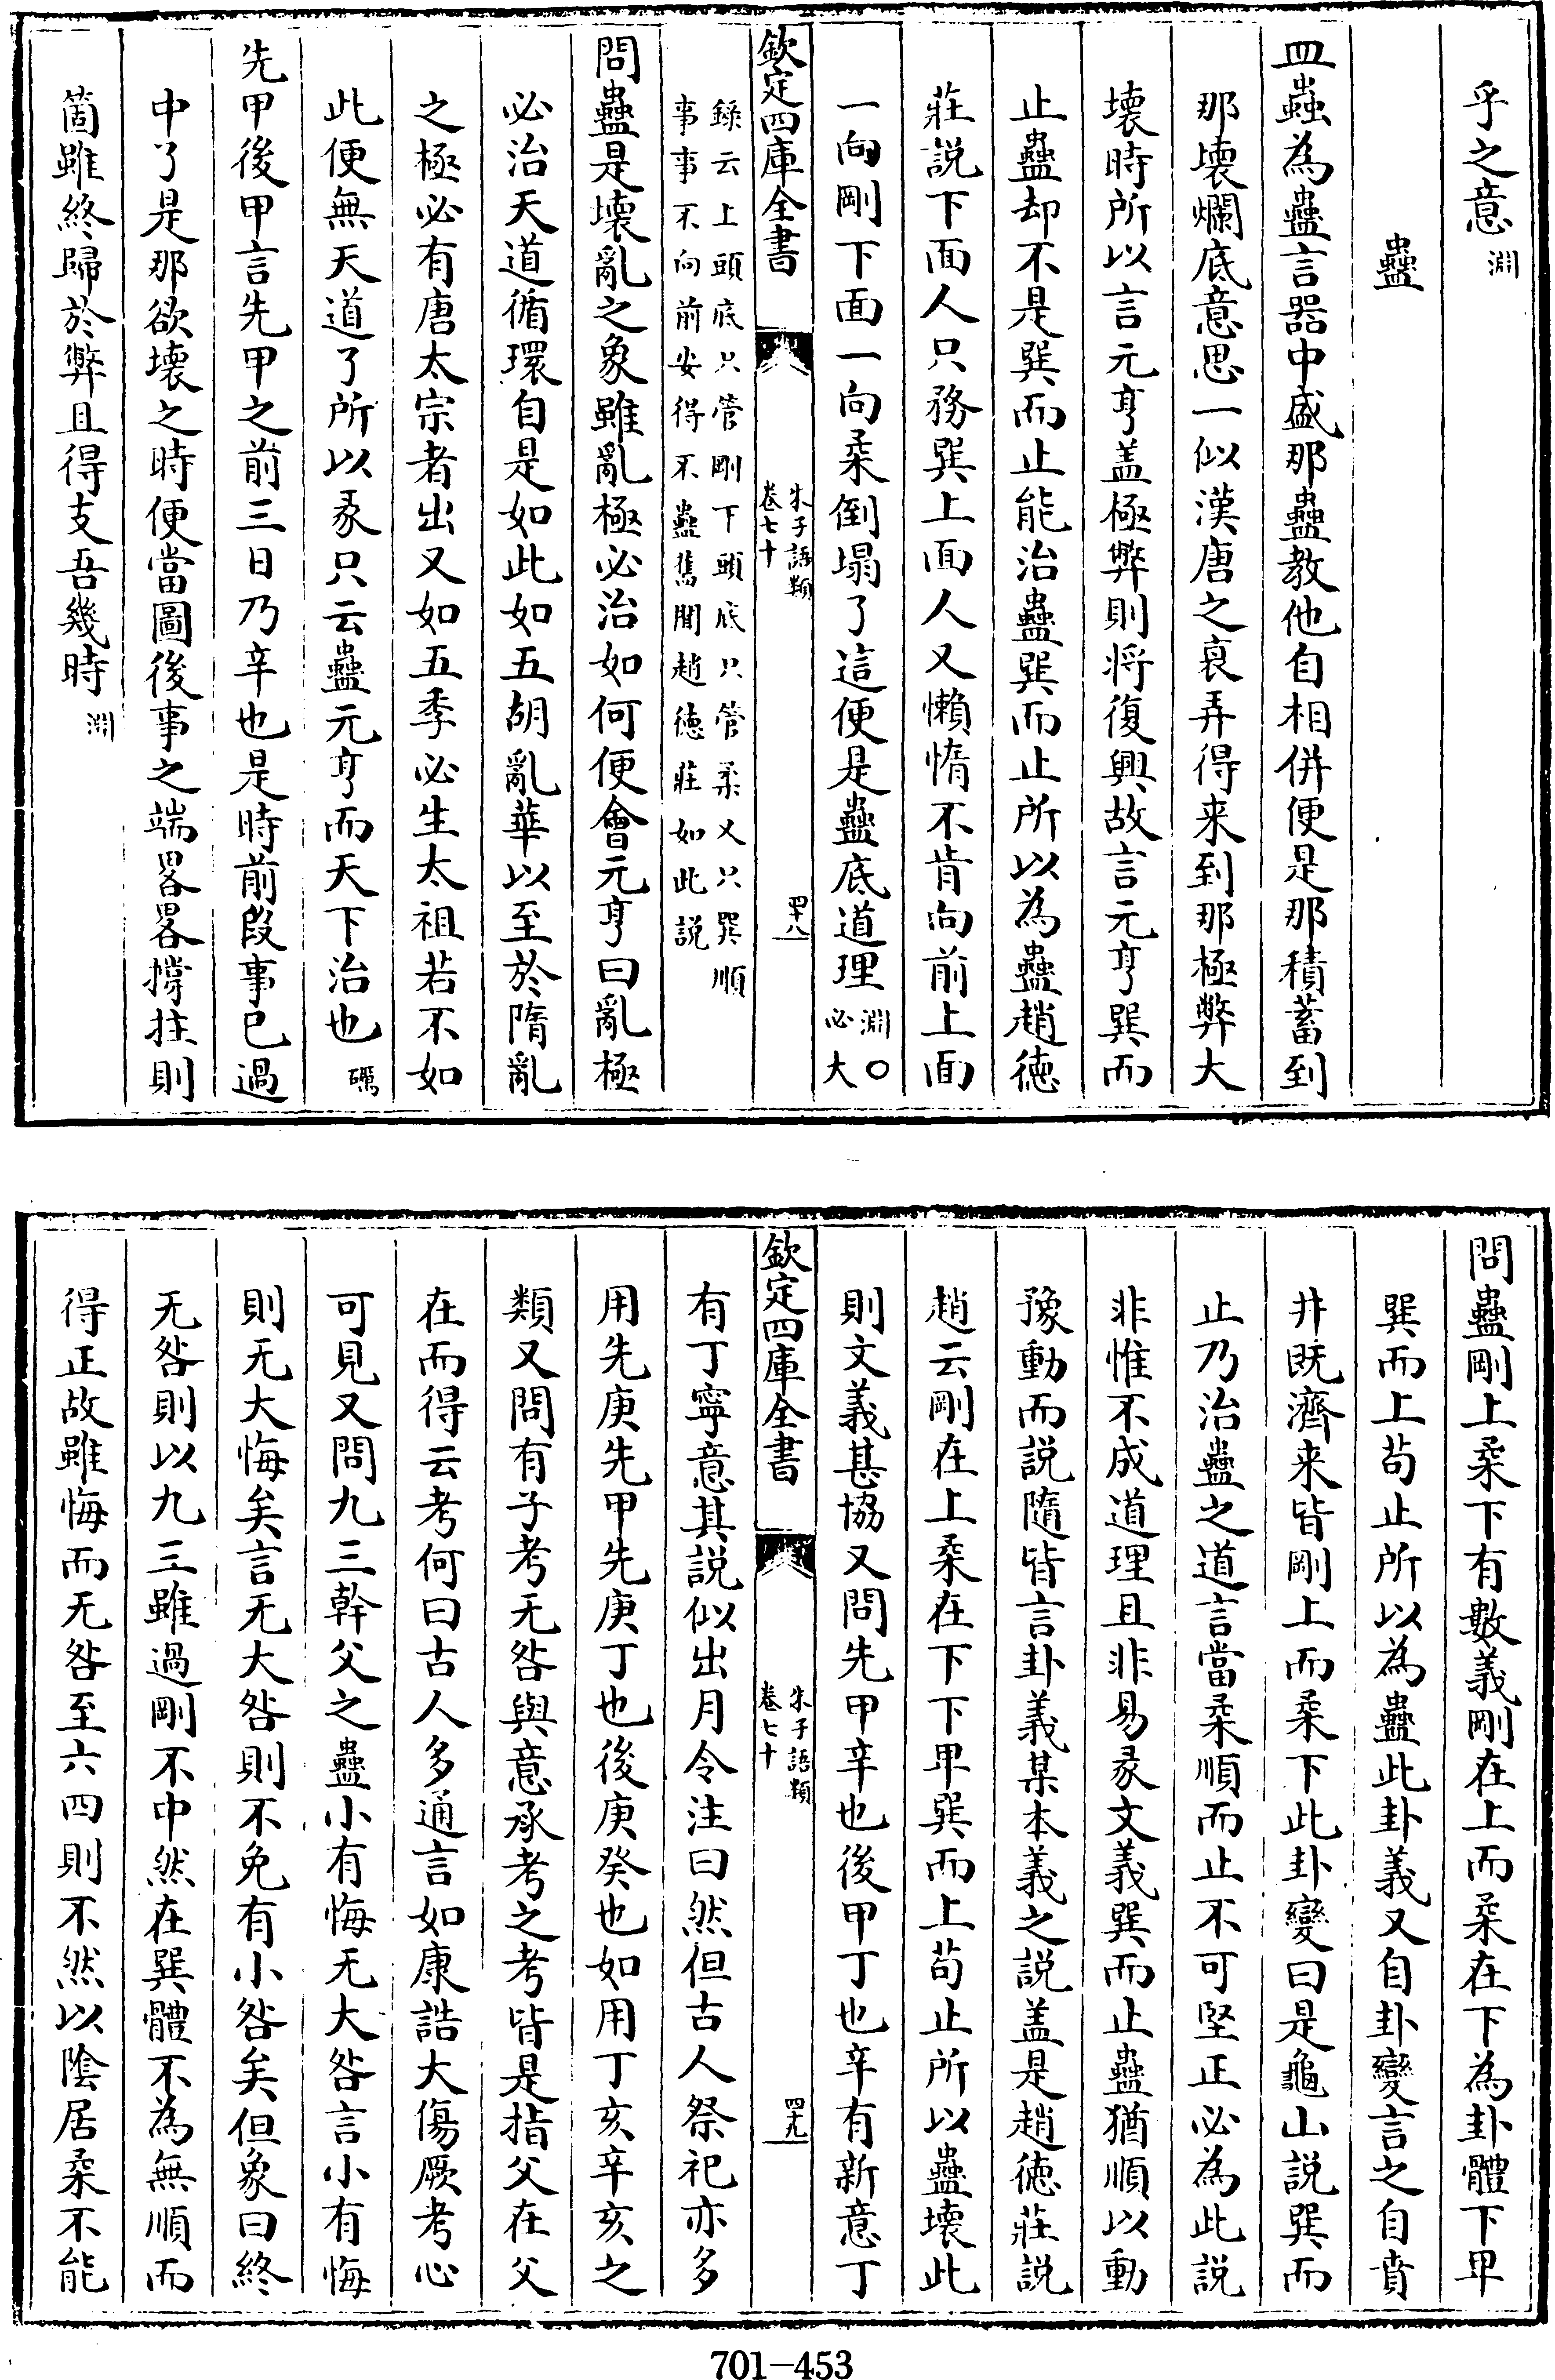 乎之意淵
蠱
皿蟲為蠱言器中盛那蠱教他自相併便是那積蓄到
那壊爛底意思一似漢唐之衰弄得来到那極弊大
壊時所以言元亨盖極弊則将復興故言元亨巽而
止蠱却不是巽而止能治蠱巽而止所以為蠱趙徳
莊説下面人只務巽上面人又懶惰不肯向前上面
一向剛下面一向柔倒塌了這便是蠱底道理淵○必大
欽定四庫全書
朱子語類
卷七十
四十八
錄云上頭底只管剛下頭底只管柔又只巽順
事事不向前安得不蠱舊聞趙徳莊如此説
問蠱是壊亂之象雖亂極必治如何便會元亨曰亂極
必治天道循環自是如此如五胡亂華以至於隋亂
之極必有唐太宗者出又如五季必生太祖若不如
此便無天道了所以彖只云蠱元亨而天下治也礪
先甲後甲言先甲之前三日乃辛也是時前段事已過
中了是那欲壊之時便當圖後事之端畧畧撐拄則
箇雖終歸於弊且得支吾幾時淵
問蠱剛上柔下有數義剛在上而柔在下為卦體下卑
巽而上苟止所以為蠱此卦義又自卦變言之自賁
井既濟来皆剛上而柔下此卦變曰是龜山説巽而
止乃治蠱之道言當柔順而止不可堅正必為此説
非惟不成道理且非易彖文義巽而止蠱猶順以動
豫動而説隨皆言卦義某本義之説盖是趙徳莊説
趙云剛在上柔在下下卑巽而上苟止所以蠱壊此
則文義甚協又問先甲辛也後甲丁也辛有新意丁
欽定四庫全書
朱子語類
卷七十
四十九
有丁寧意其説似出月令注曰然但古人祭祀亦多
用先庚先甲先庚丁也後庚癸也如用丁亥辛亥之
類又問有子考无咎與意承考之考皆是指父在父
在而得云考何曰古人多通言如康誥大傷厥考心
可見又問九三幹父之蠱小有悔无大咎言小有悔
則无大悔矣言无大咎則不免有小咎矣但象曰終
无咎則以九三雖過剛不中然在巽體不為無順而
得正故雖悔而无咎至六四則不然以陰居柔不能
701-453